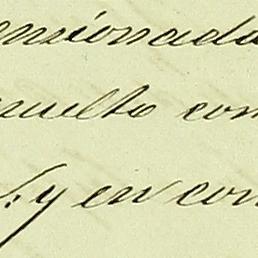 enzionada
suelto con
y en con